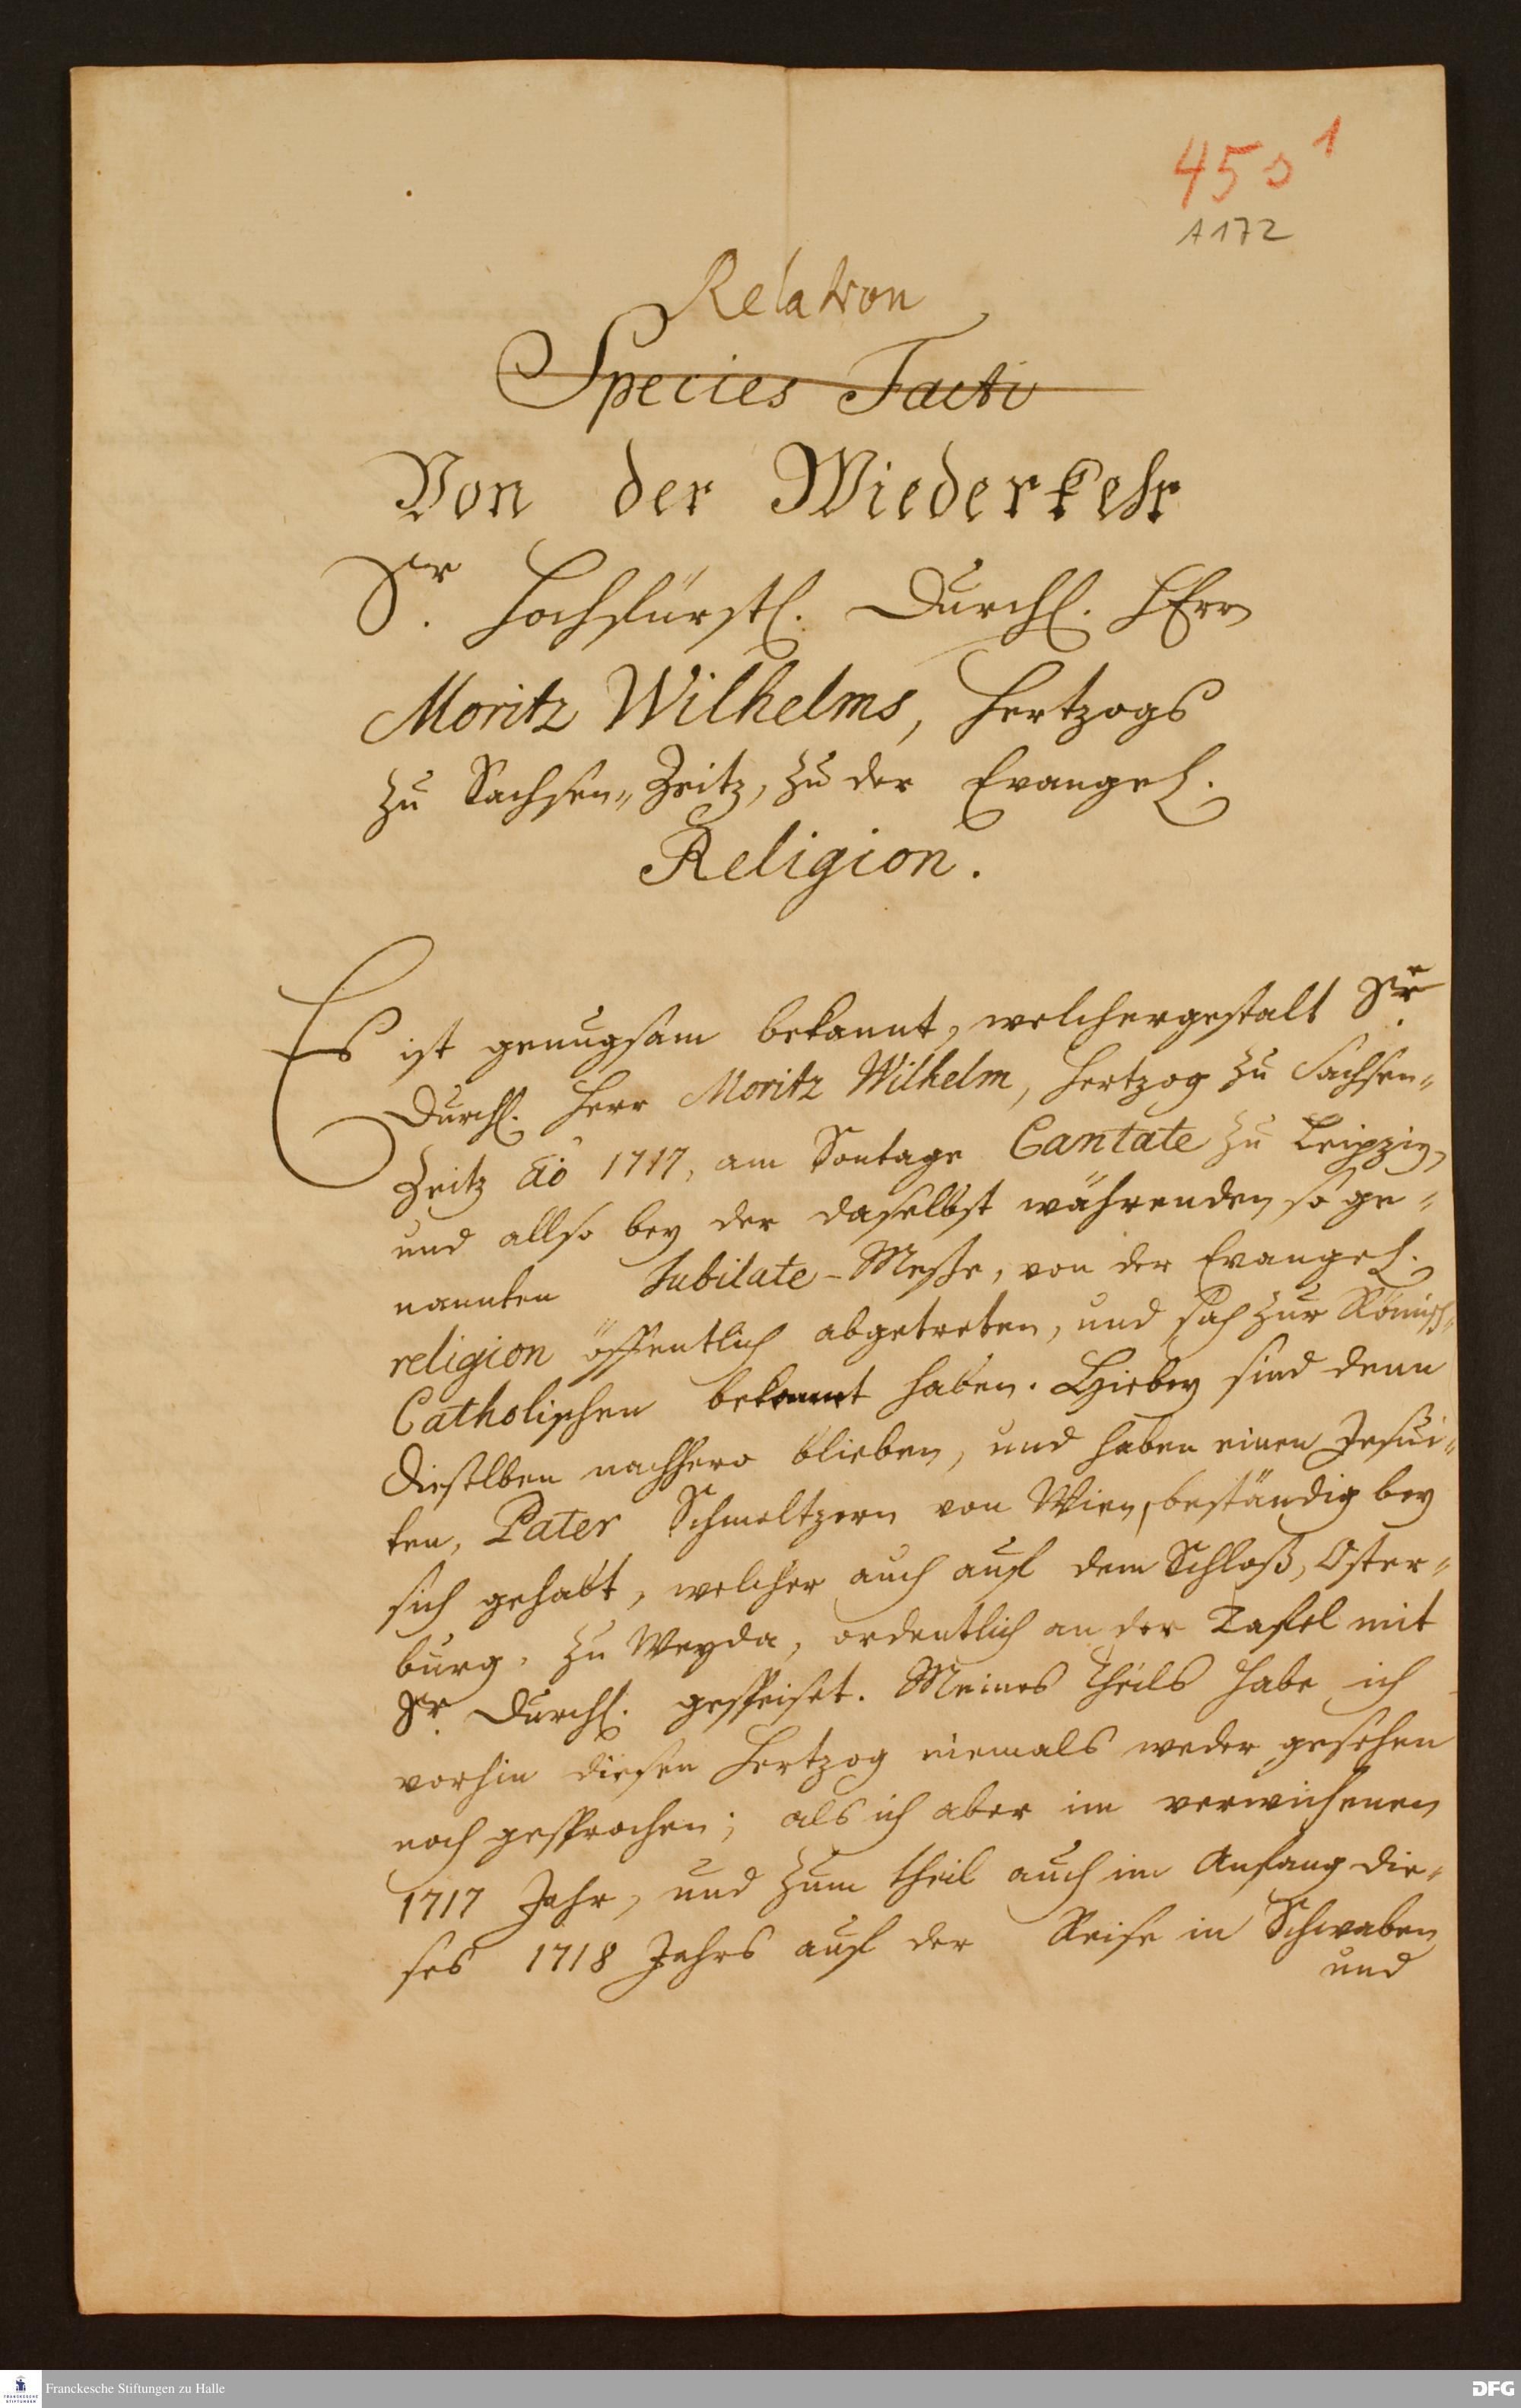 450 1
A 172
Relation
Species Facti
Von der Wiederkehr
Sr. Hochfürstl. Durchl. HErrn
Moritz Wilhelms, Hertzogs
zu Sachsen-Zeitz, zu der Evangel.
Religion.
Es ist genugsam bekannt, welchergestalt Sr.
Durchl. Herr Moritz Wilhelm, Hertzog zu Sachsen-
Zeitz Ao 1717, am Sontage Cantate zu Leipzig,
und allso bey der daselbst währenden so ge-
nannten Jubilate-Messe, von der Evangel.
religion öffentlich abgetreten, und sich zur Römisch-
Catholischen bekannt haben. Hiebey sind denn
Dieselben nachhero blieben, und haben einen Jesui-
ten, Pater Schmeltzern von Wien, beständig bey
sich gehabt, welcher auch auf dem Schloß, Oster-
burg, zu Weyda, ordentlich an der Tafel mit
Sr. Durchl. gespeiset. Meines theils habe ich
vorhin diesen Hertzog niemals weder gesehen
noch gesprochen; als ich aber im verwichenen
1717 Jahr, und zum theil auch im Anfang die-
ses 1718 Jahrs auf der Reise in Schwaben
und
Franckesche Stiftungen zu Halle
DFG